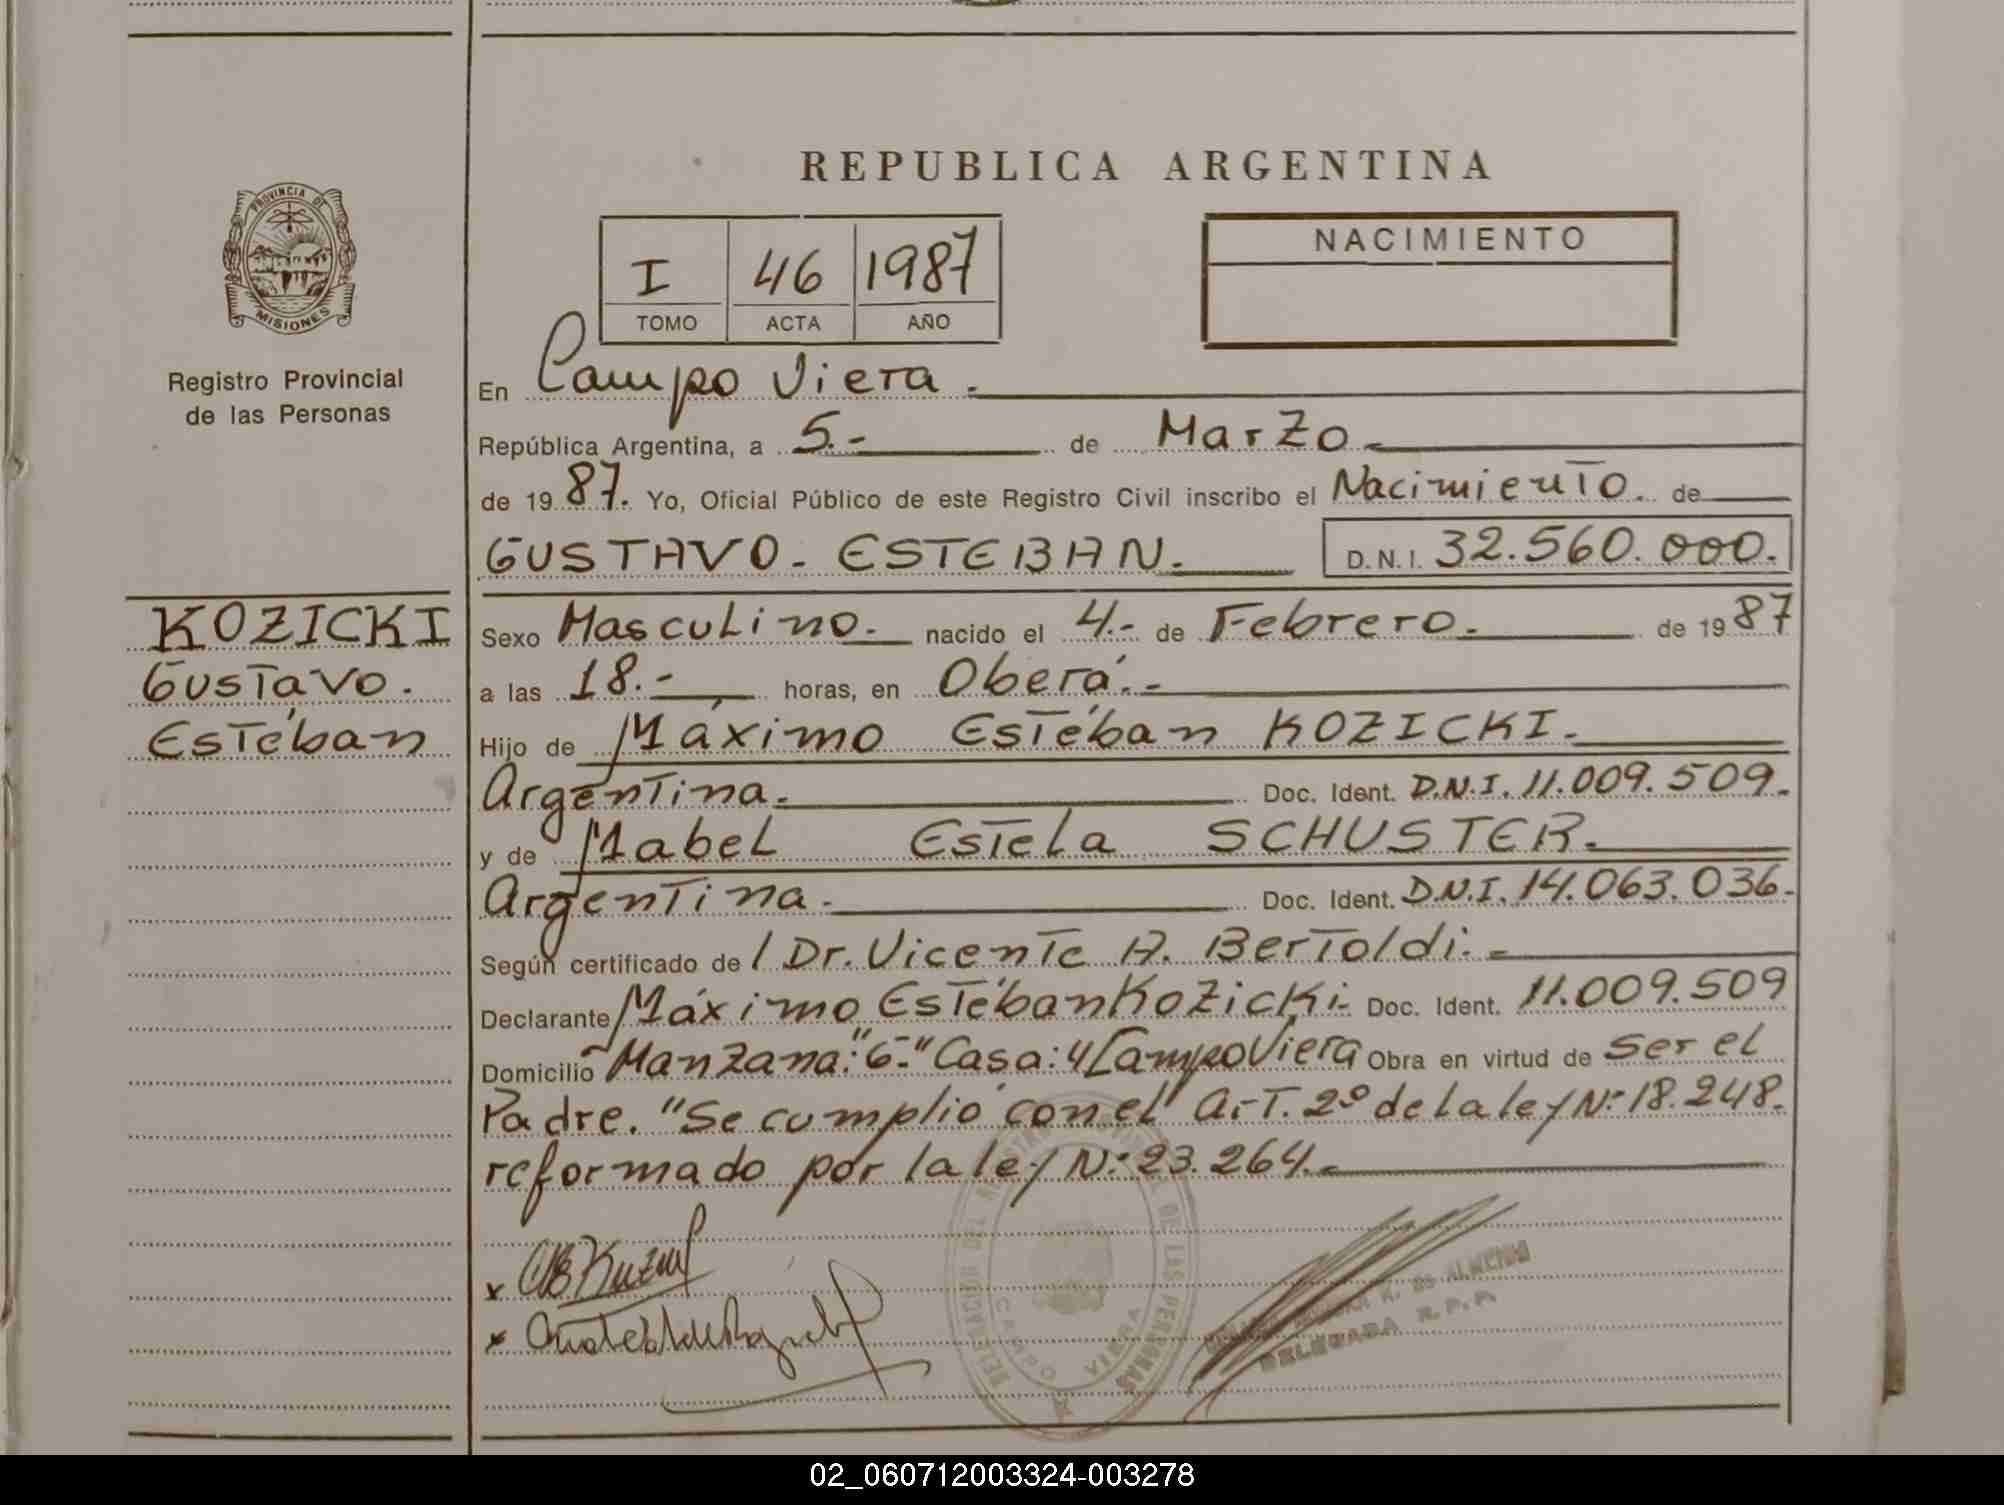 REPUBLICA ARGENTINA
PROVINCIA DE
MISIONES
Registro Provincial
de las Personas
I 46 1987
TOMO ACTA AÑO
NACIMIENTO
En Campo Viera.
República Argentina, a 5.- de Marzo.-
de 1987. Yo, Oficial Público de este Registro Civil inscribo el Nacimiento. de
GUSTAVO. ESTEBAN. D.N.I. 32.560.000.
KOZICKI
Gustavo.
Estéban
Sexo Masculino.- nacido el 4.- de Febrero.- de 1987
a las 18.- horas, en Oberá.-
Hijo de Máximo Estéban KOZICKI.
Argentina.- Doc. Ident. D.N.I. 11.009.509.
y de Mabel Estela SCHUSTER.
Argentina.- Doc. Ident. D.N.I. 14.063.036.
Según certificado de / Dr. Vicente A. Bertoldi.-
Declarante Máximo Estéban Kozicki.- Doc. Ident. 11.009.509
Domicilio Manzana: "6-" Casa: 4 Campo Viera Obra en virtud de ser el
Padre. "Se cumplio con el Art. 2º de la ley Nº 18.248.
reformado por la ley Nº 23.264.-
DELEGACION DEL REGISTRO PROVINCIAL DE LAS PERSONAS
CAMPO VIERA
DE ALMEIDA
DELEGADA R. P. P.
02_060712003324-003278